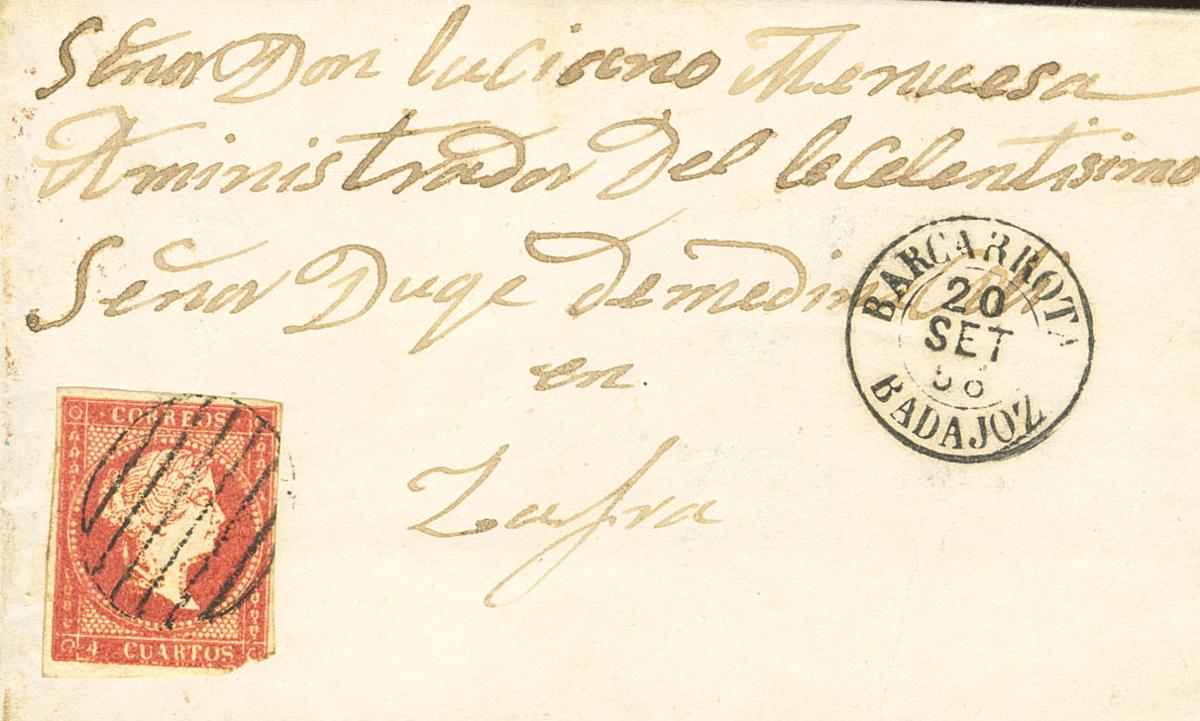 Señor Don luciano Menuesa
Aministrador Del leCelentisimo
Señor Duqe demedinaCeli
en
Zafra
BARCARROTA
20
SET
58
BADAJOZ
CORREOS
4 CUARTOS